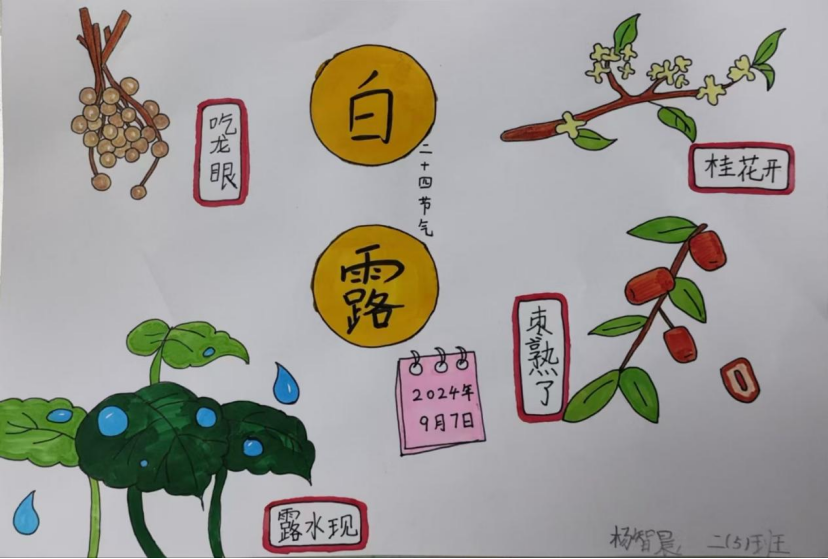 白露
二十四节气
吃龙眼
桂花开
枣熟了
2024年
9月7日
露水现
杨智晨 二(5)班